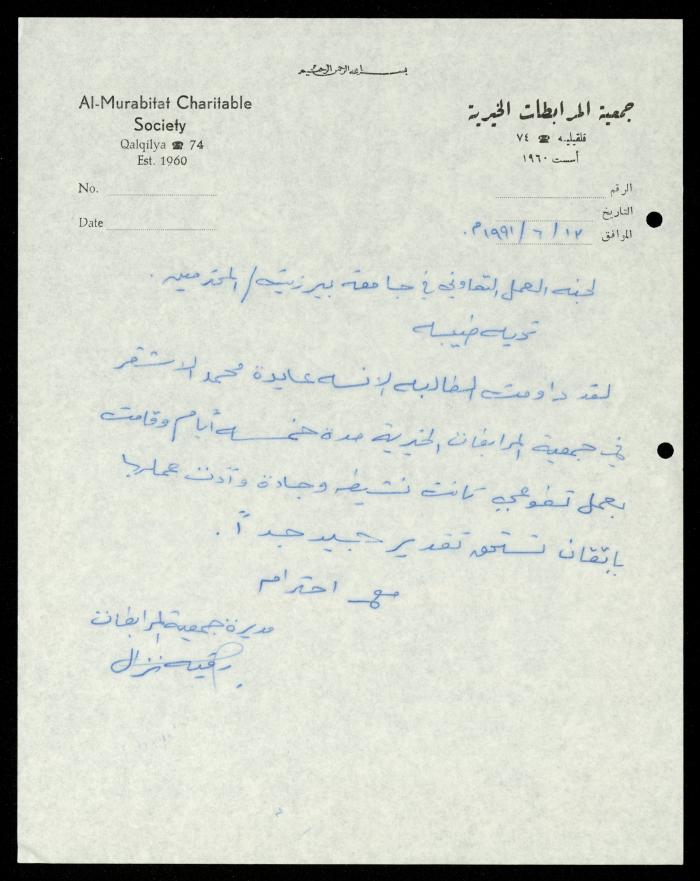 بسم الله الرحمن الرحيم
Al-Murabitat Charitable
Society
Qalqilya ☎ 74
Est. 1960
جمعية المرابطات الخيرية
قلقيليه ☎ ٧٤
أسست ١٩٦٠
No.
Date
الرقم
التاريخ
الموافق ١٢ / ٦ / ١٩٩١م.
لجنه العمل التعاوني في جامعة بيرزيت / المحترمين.
تحيه طيبه
لقد داومت الطالبه الانسه عايدة محمد الاشقر
في جمعية المرابطات الخيرية مدة خمسه أيام وقامت
بعمل تطوعي كانت نشيطه وجادة وأدت عملها
باتقان تستحق تقدير جيد جداً.
مع احترام
مديرة جمعية المرابطات
رقيه نزال